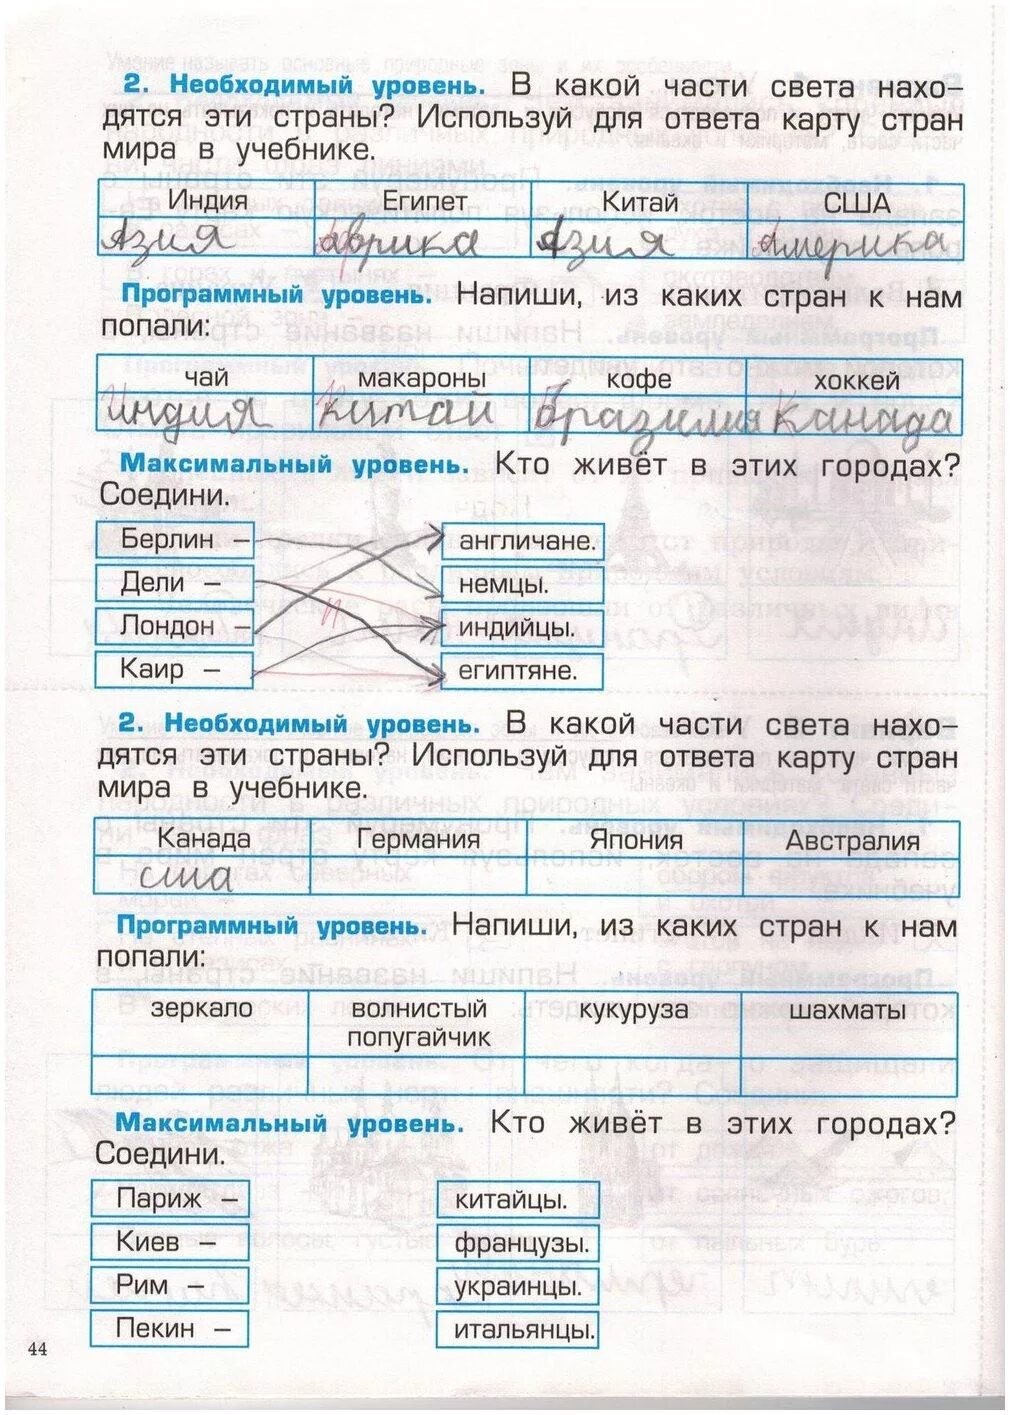 2. Необходимый уровень. В какой части света нахо-
дятся эти страны? Используй для ответа карту стран
мира в учебнике.
Индия Египет Китай США
Азия Африка Азия Америка
Программный уровень. Напиши, из каких стран к нам
попали:
чай макароны кофе хоккей
Индия Китай Бразилия Канада
Максимальный уровень. Кто живёт в этих городах?
Соедини.
Берлин – англичане.
Дели – немцы.
Лондон – индийцы.
Каир – египтяне.
2. Необходимый уровень. В какой части света нахо-
дятся эти страны? Используй для ответа карту стран
мира в учебнике.
Канада Германия Япония Австралия
сша
Программный уровень. Напиши, из каких стран к нам
попали:
зеркало волнистый попугайчик кукуруза шахматы
Максимальный уровень. Кто живёт в этих городах?
Соедини.
Париж – китайцы.
Киев – французы.
Рим – украинцы.
Пекин – итальянцы.
44